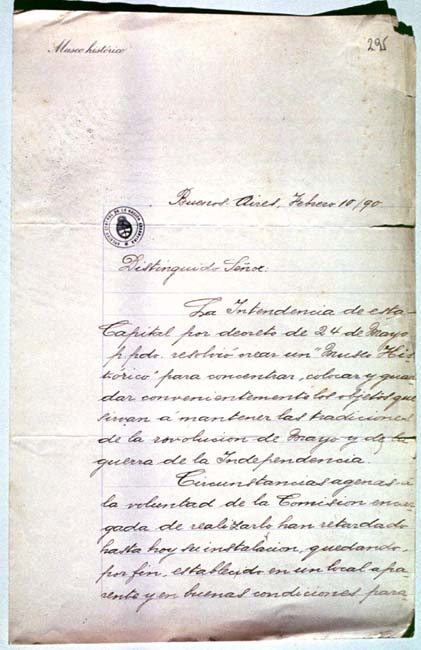 Museo histórico
295
Buenos Aires, Febrero 10/90
Distinguido Señor:
La Intendencia de esta
Capital por decreto de 24 de Mayo
p. pdo. resolvió crear un "Museo His-
tórico" para concentrar, colocar y guar
dar convenientemente los objetos que
sirvan á mantener las tradiciones
de la revolucion de Mayo y de la
guerra de la Independencia.
Circunstancias agenas á
la voluntad de la Comision encar-
gada de realizarlo, han retardado
hasta hoy su instalacion, quedando,
por fin, establecido en un local apa-
rente y en buenas condiciones para